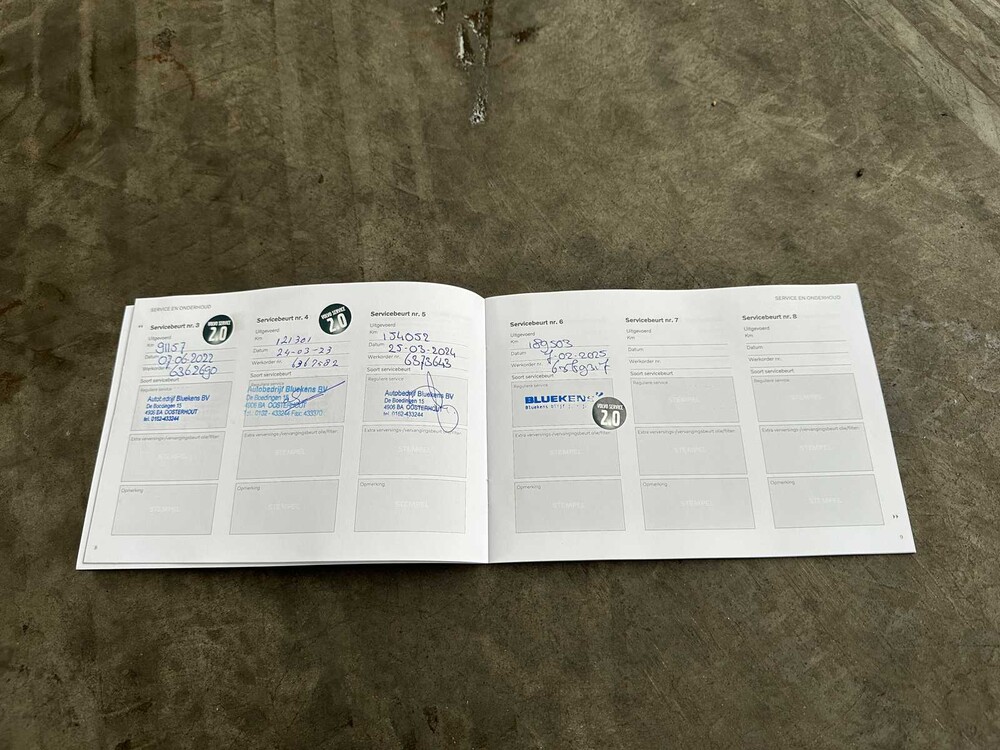 SERVICE EN ONDERHOUD
Servicebeurt nr. 3
VOLVO SERVICE
2.0
Uitgevoerd
Km 91157
Datum 07.06.2022
Werkorder nr. 6362690
Soort servicebeurt
Reguliere service
Autobedrijf Bluekens BV
De Boedingen 15
4906 BA OOSTERHOUT
tel. 0162-433244
Extra verversings-/vervangingsbeurt olie/filter
STEMPEL
Opmerking
STEMPEL
8
Servicebeurt nr. 4
VOLVO SERVICE
2.0
Uitgevoerd
Km 121301
Datum 24-03-23
Werkorder nr. 6367582
Soort servicebeurt
Reguliere service
Autobedrijf Bluekens BV
De Boedingen 15
4906 BA OOSTERHOUT
Tel. 0162-433244 Fax: 433370
Extra verversings-/vervangingsbeurt olie/filter
STEMPEL
Opmerking
STEMPEL
Servicebeurt nr. 5
Uitgevoerd
Km 154052
Datum 25-03-2024
Werkorder nr. 6373643
Soort servicebeurt
Reguliere service
Autobedrijf Bluekens BV
De Boedingen 15
4906 BA OOSTERHOUT
tel. 0162-433244
Extra verversings-/vervangingsbeurt olie/filter
STEMPEL
Opmerking
STEMPEL
SERVICE EN ONDERHOUD
Servicebeurt nr. 6
Uitgevoerd
Km 189503
Datum 7-02-2025
Werkorder nr.
Soort servicebeurt
Reguliere service
BLUEKENS
Bluekens
VOLVO SERVICE
2.0
Extra verversings-/vervangingsbeurt olie/filter
STEMPEL
Opmerking
STEMPEL
Servicebeurt nr. 7
Uitgevoerd
Km
Datum
Werkorder nr.
Soort servicebeurt
Reguliere service
STEMPEL
Extra verversings-/vervangingsbeurt olie/filter
STEMPEL
Opmerking
STEMPEL
Servicebeurt nr. 8
Uitgevoerd
Km
Datum
Werkorder nr.
Soort servicebeurt
Reguliere service
STEMPEL
Extra verversings-/vervangingsbeurt olie/filter
STEMPEL
Opmerking
STEMPEL
9